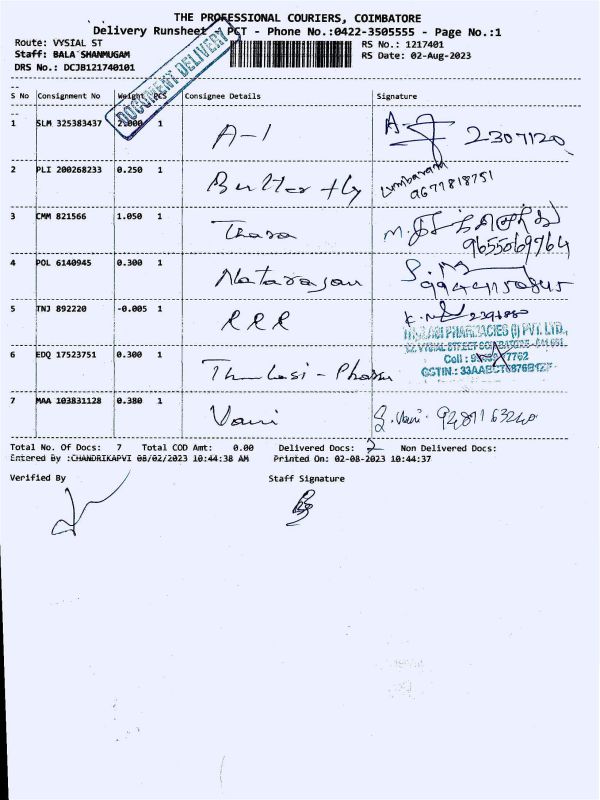 THE PROFESSIONAL COURIERS, COIMBATORE
Delivery Runsheet / PCT - Phone No.:0422-3505555 - Page No.:1
Route: VYSIAL ST
RS No.: 1217401
Staff: BALA SHANMUGAM
RS Date: 02-Aug-2023
DRS No.: DCJB121740101
DOCUMENT DELIVERY
S No Consignment No Weight PCS Consignee Details Signature
1 SLM 325383437 2.000 1 A-1 2307120
2 PLI 200268233 0.250 1 Butterfly
9677818751
3 CMM 821566 1.050 1 Thara
9655069764
4 POL 6140945 0.300 1 Natarajan
9944150845
5 TNJ 892220 -0.005 1 RRR
PHARMACIES (I) PVT. LTD.,
6 EDQ 17523751 0.300 1 Thulasi - Pharm
Cell :
GSTIN.:
7 MAA 103831128 0.380 1 Vani S. Vani. 9487163240
Total No. Of Docs: 7 Total COD Amt: 0.00 Delivered Docs: 7 Non Delivered Docs:
Entered By :CHANDRIKAPVI 08/02/2023 10:44:38 AM Printed On: 02-08-2023 10:44:37
Verified By Staff Signature